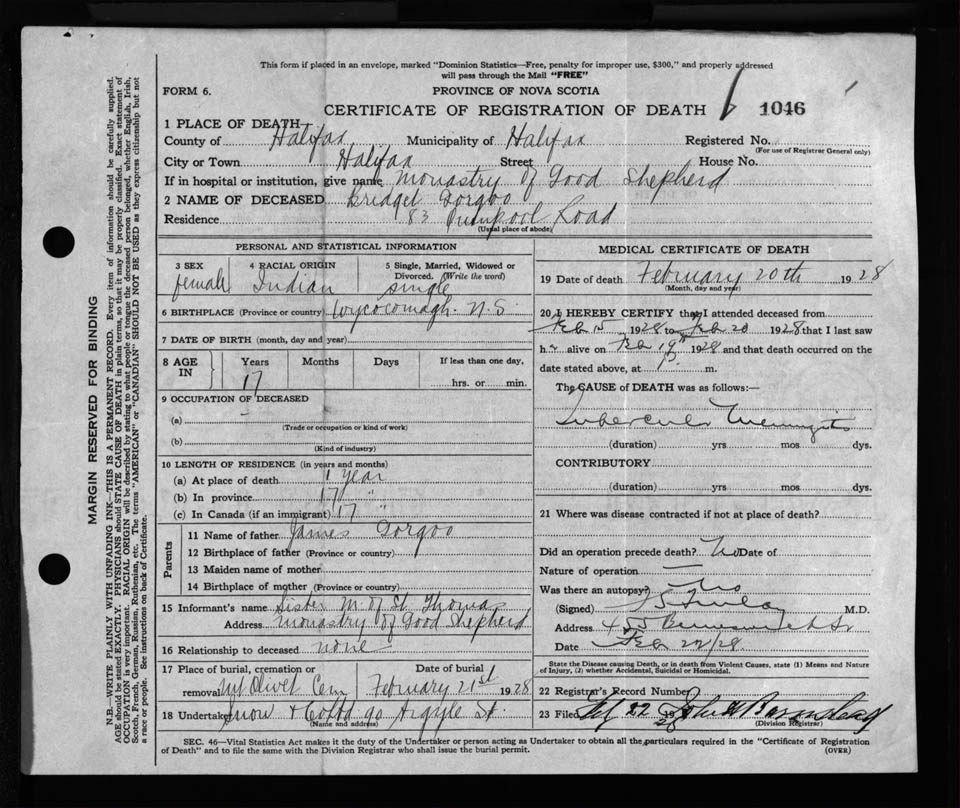 This form if placed in an envelope, marked "Dominion Statistics—Free, penalty for improper use, $300," and properly addressed
will pass through the Mail "FREE"
FORM 6.
PROVINCE OF NOVA SCOTIA
CERTIFICATE OF REGISTRATION OF DEATH
1046
1 PLACE OF DEATH
County of Halifax Municipality of Halifax Registered No.
(For use of Registrar General only)
City or Town Halifax Street House No.
If in hospital or institution, give name Monastry of Good Shepherd
2 NAME OF DECEASED Bridget Gorgoo
Residence 83 Quinpool Road
(Usual place of abode)
PERSONAL AND STATISTICAL INFORMATION
3 SEX female
4 RACIAL ORIGIN Indian
5 Single, Married, Widowed or Divorced. (Write the word) single
6 BIRTHPLACE (Province or country) Wycocomagh. N.S.
7 DATE OF BIRTH (month, day and year)
8 AGE IN Years 17 Months Days If less than one day, hrs. or min.
9 OCCUPATION OF DECEASED
(a) —
(Trade or occupation or kind of work)
(b)
(Kind of industry)
10 LENGTH OF RESIDENCE (in years and months)
(a) At place of death 1 year
(b) In province 17 "
(c) In Canada (if an immigrant) 17 "
Parents
11 Name of father James Gorgoo
12 Birthplace of father (Province or country)
13 Maiden name of mother —
14 Birthplace of mother (Province or country)
15 Informant's name Sister M. of St. Thomas
Address Monastry of Good Shepherd
16 Relationship to deceased none
17 Place of burial, cremation or removal Mt Olivet Cem
Date of burial February 21st 1928
18 Undertaker Snow + Co Ltd 90 Argyle St.
(Name and address)
MEDICAL CERTIFICATE OF DEATH
19 Date of death February 20th 1928
(Month, day and year)
20 I HEREBY CERTIFY that I attended deceased from
Feb 15 1928 to Feb 20 1928 that I last saw
h alive on Feb 19th 1928 and that death occurred on the
date stated above, at m.
The CAUSE of DEATH was as follows:—
Tubercular Meningitis
(duration) yrs mos dys.
CONTRIBUTORY
(duration) yrs mos dys.
21 Where was disease contracted if not at place of death?
Did an operation precede death? No Date of
Nature of operation —
Was there an autopsy? No
(Signed) Finlay M.D.
Address Brunswick St
Date Feb 22/28
State the Disease causing Death, or in death from Violent Causes, state (1) Means and Nature
of Injury, (2) whether Accidental, Suicidal or Homicidal.
22 Registrar's Record Number
23 Filed Feb 22 1928 John Barnstead
(Division Registrar)
SEC. 46—Vital Statistics Act makes it the duty of the Undertaker or person acting as Undertaker to obtain all the particulars required in the "Certificate of Registration
of Death" and to file the same with the Division Registrar who shall issue the burial permit.
(OVER)
MARGIN RESERVED FOR BINDING
N.B.—WRITE PLAINLY WITH UNFADING INK—THIS IS A PERMANENT RECORD. Every item of information should be carefully supplied.
AGE should be stated EXACTLY. PHYSICIANS should STATE CAUSE OF DEATH in plain terms, so that it may be properly classified. Exact statement of
OCCUPATION is very important. RACIAL ORIGIN will be described by stating to what people or tongue the deceased person belonged, whether English, Irish,
Scotch, French, German, Russian, Ruthenian, etc. The terms "AMERICAN" or "CANADIAN" SHOULD NOT BE USED as they express citizenship but not
a race or people. See instructions on back of Certificate.